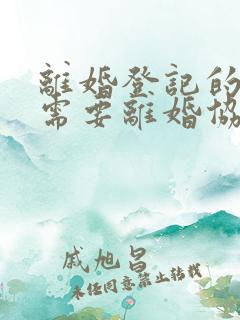 離婚登記的
需要離婚協
戚旭昌
未经同意禁止转载